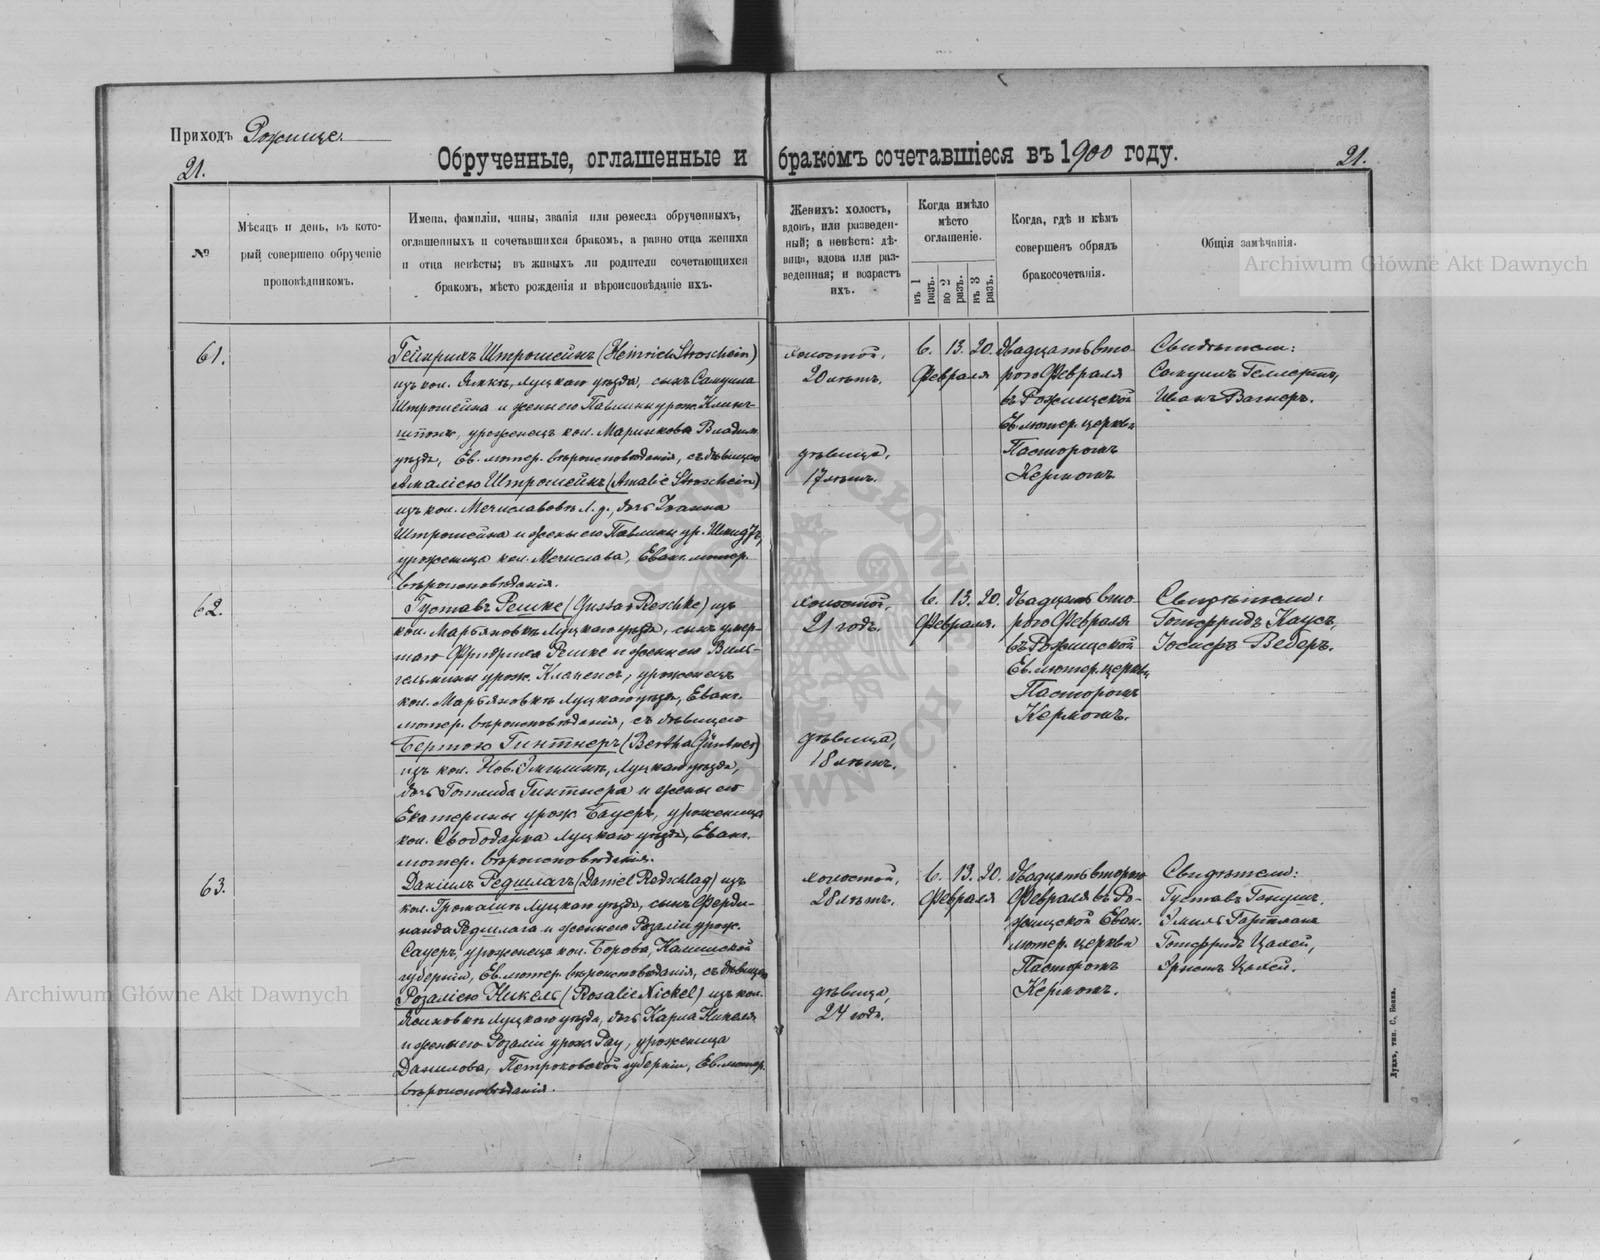 Приходъ Рожище.
21.
Обрученные, оглашенные и бракомъ сочетавшіеся въ 1900 году.
21.
№
Мѣсяцъ и день, въ кото-
рый совершено обрученіе
проповѣдникомъ.
Имена, фамиліи, чины, званія или ремесла обрученныхъ,
оглашенныхъ и сочетавшихся бракомъ, а равно отца жениха
и отца невѣсты; въ живыхъ ли родители сочетающихся
бракомъ, мѣсто рожденія и вѣроисповѣданіе ихъ.
Женихъ: холостъ,
вдовъ, или разведен-
ный; а невѣста: дѣ-
вица, вдова или раз-
веденная; и возрастъ
ихъ.
Когда имѣло
мѣсто
оглашеніе.
въ 1 разъ.
во 2 разъ.
въ 3 разъ.
Когда, гдѣ и кѣмъ
совершенъ обрядъ
бракосочетанія.
Общія замѣчанія.
61.
Гейнрихъ Штрошейнъ (Heinrich Stroschein)
изъ кол. Луцкаго уѣзда, сынъ Самуила
Штрошейна и жены его Павлины урож. Клин-
уроженецъ кол. Маринкова Владим.
уѣзда, Ев. лютер. вѣроисповѣданія, съ дѣвицею
Амаліею Штрошейнъ (Amalie Stroschein)
изъ кол. Мечиславовъ Л. у., дочь Іоанна
Штрошейна и жены его Павлины ур.
уроженица кол. Мечислава, Еванг. лютер.
вѣроисповѣданія.
холостой,
20 лѣтъ.
дѣвица,
17 лѣтъ.
6. 13. 20.
Февраля
Двадцать вто-
рого Февраля
въ Рожищской
Ев. лютер. церкви
Пасторомъ
Кермомъ.
Свидѣтели:
Самуилъ Геллертъ,
Иванъ Вагнеръ.
62.
Густавъ Решке (Gustav Reschke) изъ
кол. Марьяновка Луцкаго уѣзда, сынъ умер-
шаго Фридриха Решке и жены его Виль-
гельмины урож. уроженецъ
кол. Марьяновка Луцкаго уѣзда, Еванг.
лютер. вѣроисповѣданія, съ дѣвицею
Бертою Гинтнеръ (Bertha Güntner)
изъ кол. Нов. Луцкаго уѣзда,
дочь Готлиба Гинтнера и жены его
Екатерины урож. Бауеръ, уроженица
кол. Свободарка Луцкаго уѣзда, Еванг.
лютер. вѣроисповѣданія.
холостой,
21 годъ.
дѣвица,
18 лѣтъ.
6. 13. 20.
Февраля.
Двадцать вто-
рого Февраля
въ Рожищской
Ев. лютер. церкви
Пасторомъ
Кермомъ.
Свидѣтели:
Готфридъ Каусъ,
Іосифъ Веберъ.
63.
Даніилъ Редшлагъ (Daniel Redschlag) изъ
кол. Громашъ Луцкаго уѣзда, сынъ Ферди-
нанда Редшлага и жены его Розаліи урож.
Сауеръ, уроженецъ кол. Борова, Калишской
губерніи, Ев. лютер. вѣроисповѣданія, съ дѣвицею
Розаліею Никель (Rosalie Nickel) изъ кол.
Яновка Луцкаго уѣзда, дочь Карла Никеля
и жены его Розаліи урож. Рау, уроженица
Данилова, Петроковской губерніи, Ев. лютер.
вѣроисповѣданія.
холостой,
28 лѣтъ.
дѣвица,
24 года.
6. 13. 20.
Февраля
Двадцать второго
Февраля въ Ро-
жищской Еван.
лютер. церкви
Пасторомъ
Кермомъ.
Свидѣтели:
Густавъ
Эмиль Гартманъ
Готфридъ Цахей,
Эрнстъ Цахей.
Луцкъ, тип. С. Бонка.
Archiwum Główne Akt Dawnych
Archiwum Główne Akt Dawnych